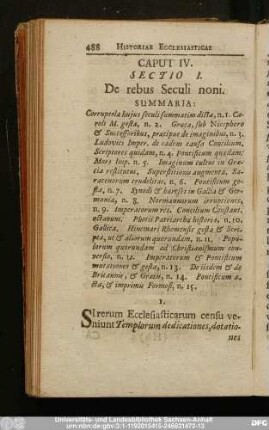 488 HISTORIAE ECCLESIASTICAE
CAPUT IV.
SECTIO I.
De rebus Seculi noni.
SUMMARIA:
Corruptela hujus seculi summatim dicta, n.1. Ca-
roli M. gesta, n. 2. Græca, sub Nicephoro
& Successoribus, præcipue de imaginibus, n. 3.
Ludovici Imper. de eadem causa Concilium,
Scriptores quidam, n. 4. Pontificum quædam:
Mors Imp. n. 5. Imaginum cultus in Græ-
cia restitutus, Superstitionis augmenta, Sa-
racenorum crudelitas, n. 6. Pontificum ge-
sta, n. 7. Synodi & hæreses in Gallia & Ger-
mania, n. 8. Normannorum irruptiones,
n. 9. Imperatorum res. Concilium Constant.
octavum, Photii Patriarcha historia, n. 10.
Gallica, Hincmari Rhemensis gesta & Scri-
pta, ut & aliorum quorundam, n. 11. Popu-
lorum quorundam ad Christianismum con-
versio, n. 12. Imperatorum & Pontificum
mutationes & gesta, n. 13. De iisdem & de
Britannis, & Græcis, n. 14. Pontificum a-
cta, & imprimis Formosi, n. 15.
I.
SI rerum Ecclesiasticarum censu ve-
niunt Templorum dedicationes, dotatio-
nes
Universitäts- und Landesbibliothek Sachsen-Anhalt